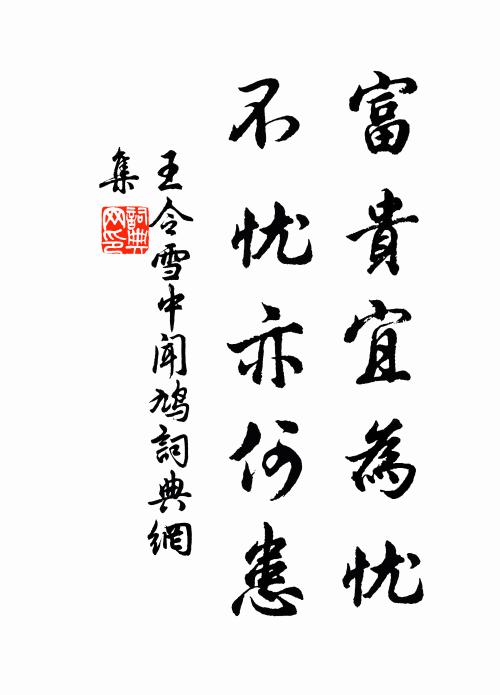 富貴宜為忧
不忧亦何患
王令雪中闻鸠詞典網
集
詞典
网印